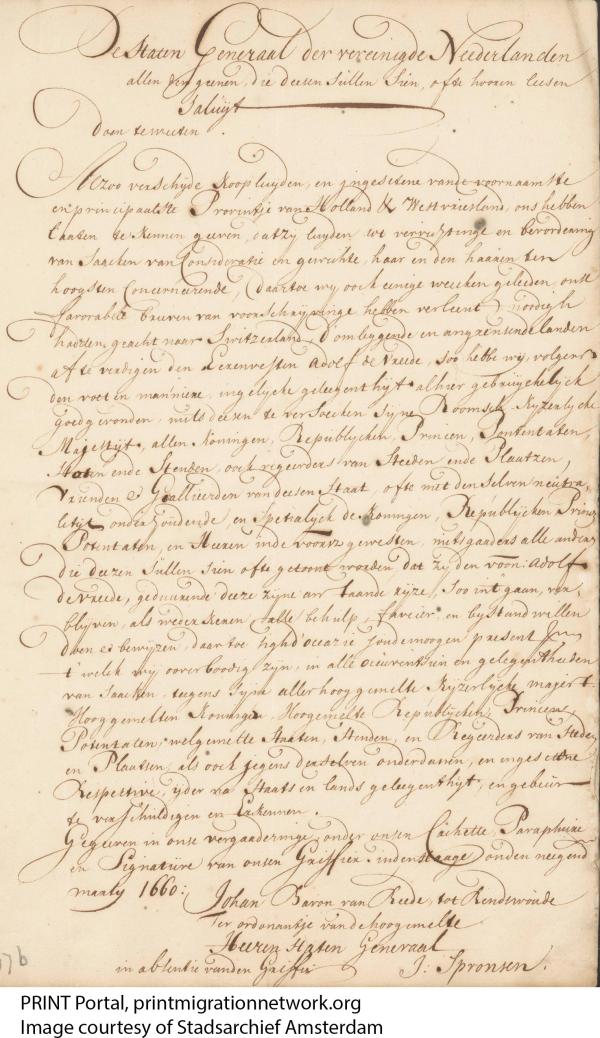 De Staten Generaal der vereinigde Neederlanden
allen den geenen, die deesen Sullen Sien, ofte hooren leesen
Saluyt
Doen te weeten.
Alzoo verschyde Koopluyden, en ingesetene vande voornaamste
en principaalste Provintje van Holland & Westvriesland, ons hebben
laaten te kennen geeven, dat zy luyden tot verrigtinge en bevordering
van Saacken van Consideratie en gewichte, haar en den haaren ten
hoogsten Concerneerende, (daar toe wy ook eenige weecken geleeden, onse
favorable brieven van voorschryvinge hebben verleent) noodigh
hadden geacht naar Switzerland, d'omleggende en angrensende landen
af te vardigen den Adolf de Vreede, Soo hebbe wy, volgens
den voet en manniere, in gelycke geleegenthyt alhier gebruyckelyck
goedgevonden, mits deesen te versoecken Syne Roomsch Kyzerlycke
Majestyt, allen Koningen, Republycken, Princen, Pontentaten,
Staten ende Stenden, ook regeerders van Steeden ende Plaatzen,
Vrienden & Geallieerden van deesen Staat, ofte met den Selven neutra-
lityt onderhoudende en Spetialyck de Koningen, Republycken, Prince
Potentaten, en Heeren inde voorsz gewesten, mitsgaders alle andere
die deezen Sullen Sien ofte getoont worden dat zy den voorn: Adolf
de Vreede, geduurende deeze zyne aan staande ryze, Soo int gaan, ver-
blyven, als weederkeeren, alle behulp, faveur, en bystand wellen
doen & bewyzen, daar toe
t welck wy overboodig zyn, in alle occurentsien en gelegentheeden
van Saacken, tegens Syne allerhooggemelte Kyzerlycke majest
Hooggemelten Koningen, Hoogemelte Republycken, Princens
Potentaten, welgemelte Staaten, Stenden, en Regeerders van Steden
en Plaatsen, als ook jegens derselven onderdanen, en ingesetene
Respective, yder na Staats en lands geleegenthyt, en gebeur
te verschuldigen en Erkennen.
Gegeeven in onse vergaderinge, onder onsen Cachette, Paraphure
en Signature van onsen Griffier indenHaage, onden neegende
maarty 1660:
Johan Baron van Reede, tot Renswoude
Ter ordonantje vande hoogemelte
Heeren Staten Generaal
in absentie vanden Griffier J: Spronsen.
PRINT Portal, printmigrationnetwork.org
Image courtesy of Stadsarchief Amsterdam